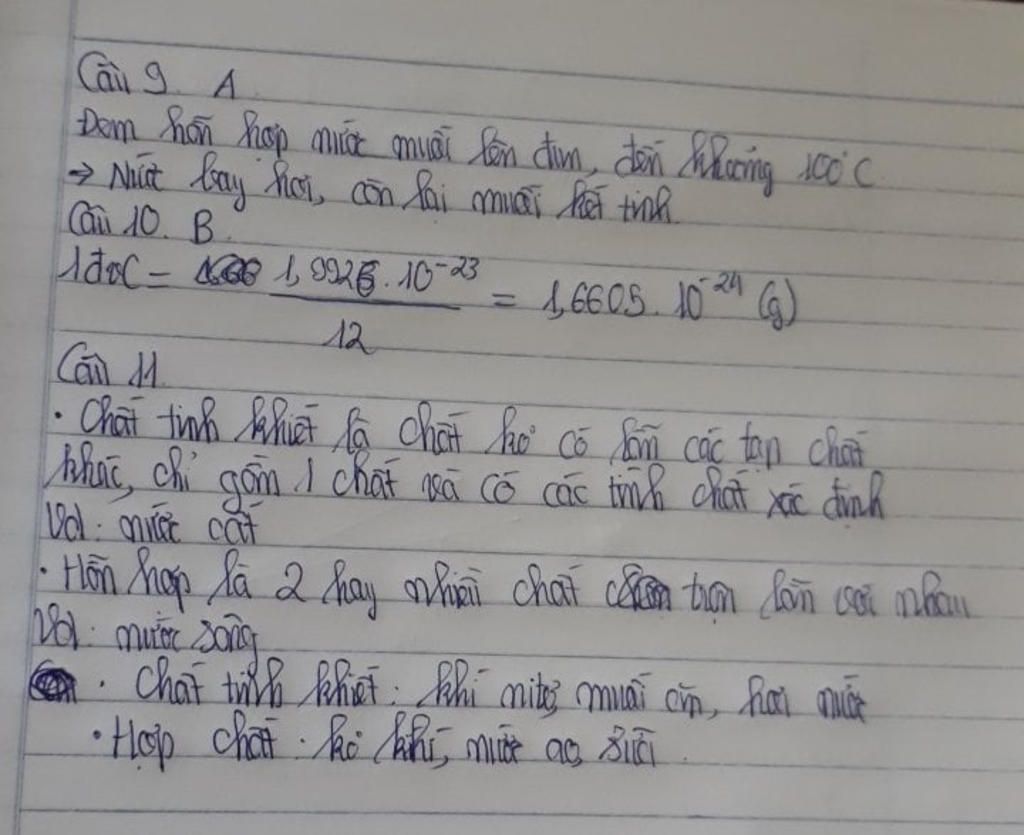 Câu 9. A
Đem hỗn hợp nước muối lên đun, đến khoảng 100°C
→ Nước bay hơi, còn lại muối kết tinh
Câu 10. B.
1đvC = 1,9926.10⁻²³ / 12 = 1,6605.10⁻²⁴ (g)
Câu 11
• Chất tinh khiết là chất ko có lẫn các tạp chất
khác, chỉ gồm 1 chất và có các tính chất xác định
Vd: nước cất
• Hỗn hợp là 2 hay nhiều chất trộn lẫn với nhau
Vd: nước sông
• Chất tinh khiết: khí nitơ, muối ăn, hơi nước
• Hợp chất: ko khí, nước ao, suối.